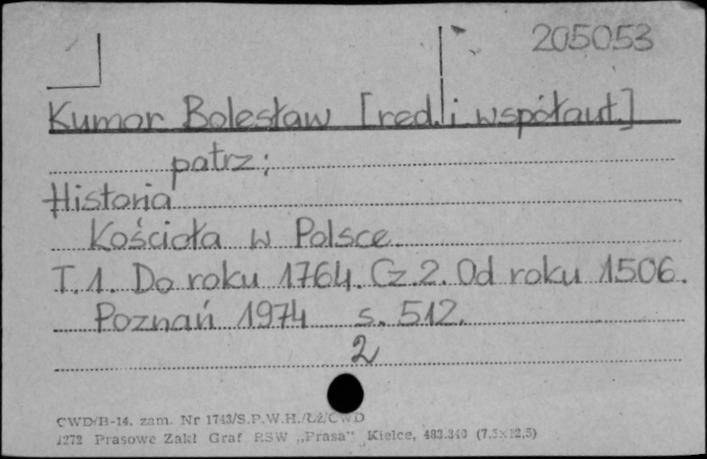 205053
Kumor Bolesław [red. i współaut.]
patrz:
Historia
Kościoła w Polsce
T. 1. Do roku 1764. Cz. 2. Od roku 1506.
Poznań 1974 s. 512.
2
CWD/B-14. zam. Nr 1743/S.P.W.H./ŁŻ/CWD
1272 Prasowe Zakł Graf RSW „Prasa" Kielce, 483.340 (7.5×12,5)